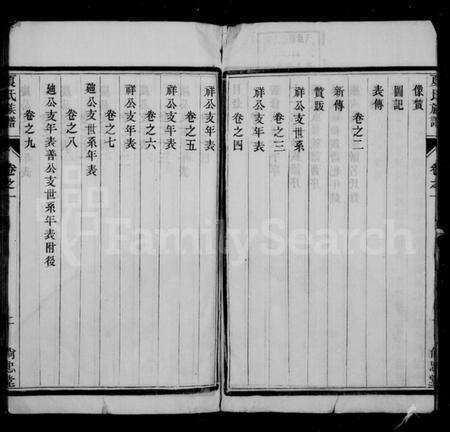 像贊
圖記
表傳
卷之二
新傳
贊販
祥公支世系
卷之三
祥公支年表
卷之四
祥公支年表
卷之五
祥公支年表
卷之六
祥公支年表
卷之七
廸公支世系年表
卷之八
廸公支年表善公支世系年表附後
卷之九
夏氏族譜
卷之一
FamilySearch